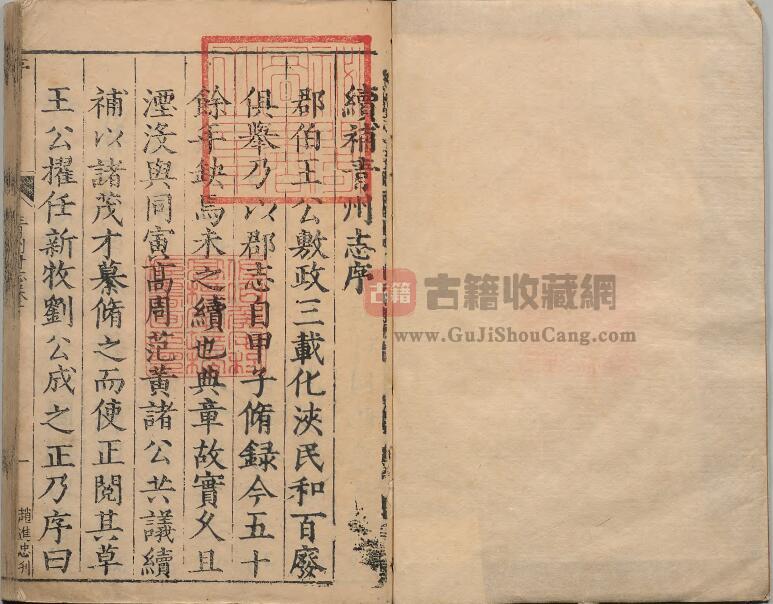 續補青州志序
郡伯王公敷政三載化浹民和百廢
俱舉乃以郡志自甲子脩録今五十
餘年缺焉未之續也典章故實久且
湮沒與同寅髙周范黃諸公共議續
補以諸茂才纂脩之而使正閱其草
王公擢任新牧劉公成之正乃序曰
一
趙進忠刋
古籍
古籍收藏網
www.GuJiShouCang.com